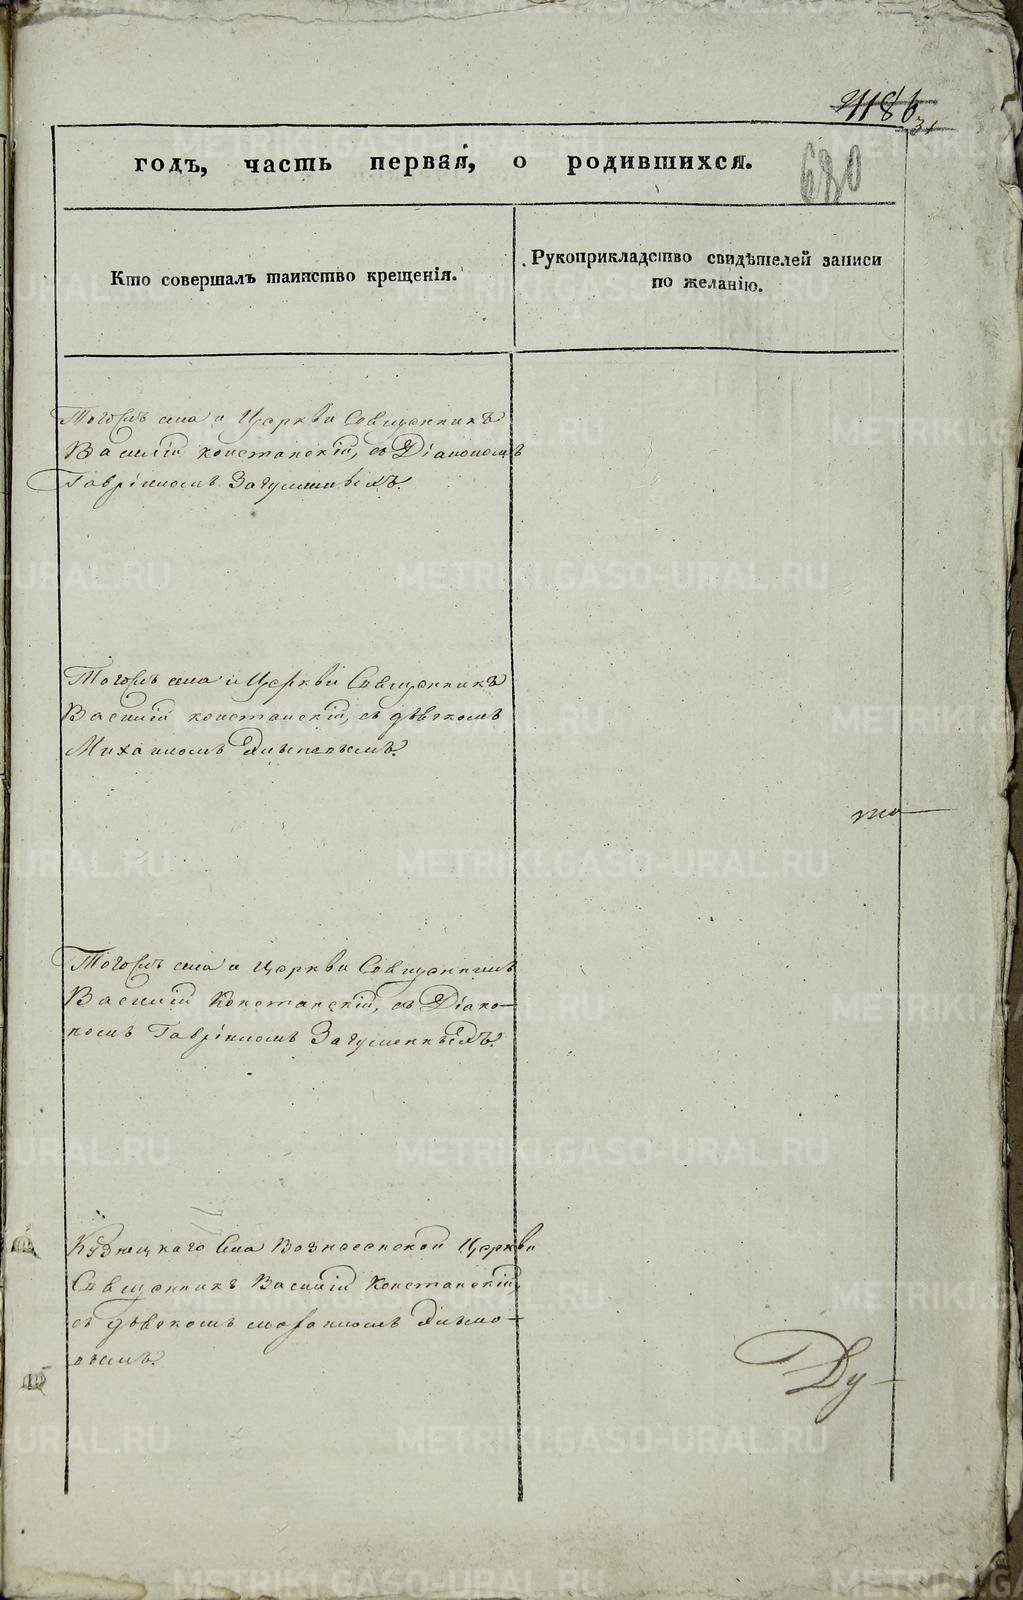 31
680
годъ, часть первая, о родившихся.
Кто совершалъ таинство крещенія.
Рукоприкладство свидѣтелей записи
по желанію.
села и Церкви Священникъ
Василій констанскій, съ Діакономъ
Гавріиломъ
села и Церкви Священникъ
Василій констанскій, съ дьячкомъ
Михаиломъ
села и Церкви Священникъ
Василій Констанскій, съ Діако-
номъ Гавріиломъ Загуменныхъ.
села Вознесенской Церкви
Священникъ Василій Констанскій,
съ дьячкомъ
Ду-
METRIKI.GASO-URAL.RU